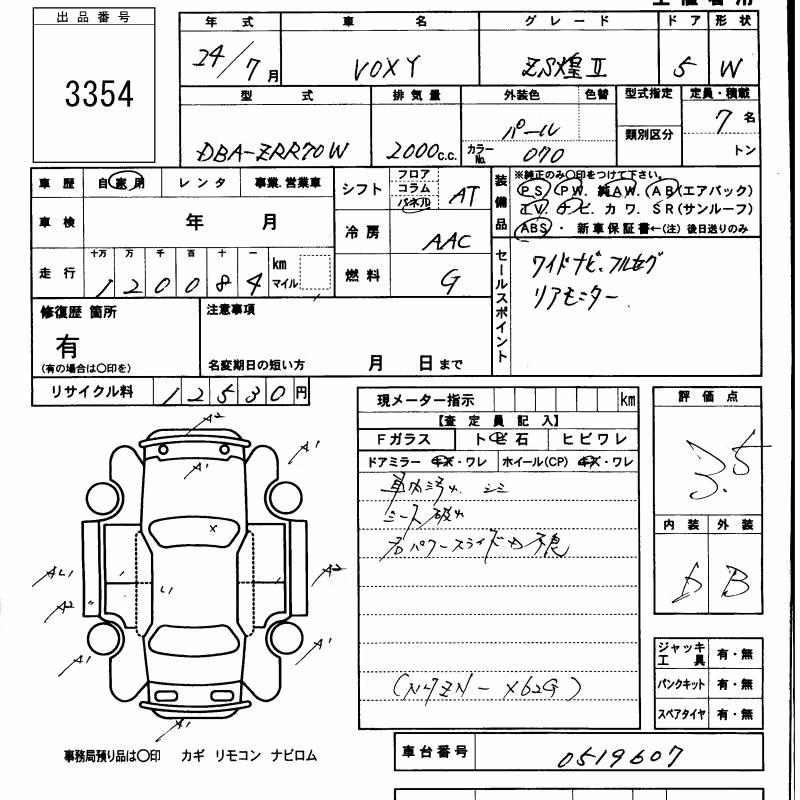 出品番号
3354
年式 車名 グレード ドア 形状
24/7月 VOXY ZS煌Ⅱ 5 W
型式 排気量 外装色 色替 型式指定 定員・積載
類別区分
DBA-ZRR70W 2000c.c. パール 7名
カラーNo. 070 トン
車歴 自家用 レンタ 事業.営業車
車検 年 月
走行 十万 万 千 百 十 一
120084 km マイル
シフト フロア コラム パネル AT
冷房 AAC
燃料 G
装備品
※純正のみ〇印をつけて下さい。
PS. PW. 純AW. AB(エアバック)
TV. ナビ. カワ. SR(サンルーフ)
ABS・ 新車保証書←(注) 後日送りのみ
セールスポイント
ワイドナビ、フルセグ
リアモニター
修復歴 箇所
有
(有の場合は〇印を)
注意事項
名変期日の短い方 月 日まで
リサイクル料 12530円
現メーター指示 km
【査定員記入】
Fガラス トビ石 ヒビワレ
ドアミラー キズ・ワレ ホイール(CP) キズ・ワレ
車内汚れ シミ
シース破れ
右パワースライドカ不良
評価点
3.5
内装 外装
D B
A2
A1
A1
A2
A2
A1
A1
A1
ジャッキ工具 有・無
パンクキット 有・無
スペアタイヤ 有・無
事務局預り品は〇印 カギ リモコン ナビロム
車台番号 0519607